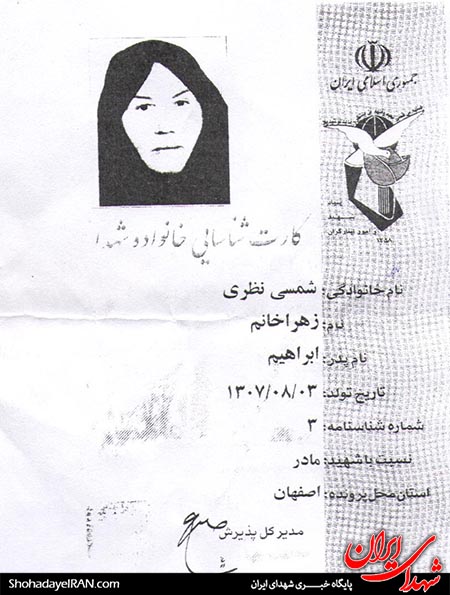 جمهوری اسلامی ایران
بنیاد
شهید
و امور ایثارگران
۱۳۵۸
کارت شناسایی خانواده شهدا
نام خانوادگی: شمسی نظری
نام: زهراخانم
نام پدر: ابراهیم
تاریخ تولد: ۱۳۰۷/۰۸/۰۳
شماره شناسنامه: ۳
نسبت با شهید: مادر
استان محل پرونده: اصفهان
مدیر کل پذیرش
شهدای ایران
پایگاه خبـری شهدای ایران
ShohadayeIRAN.com